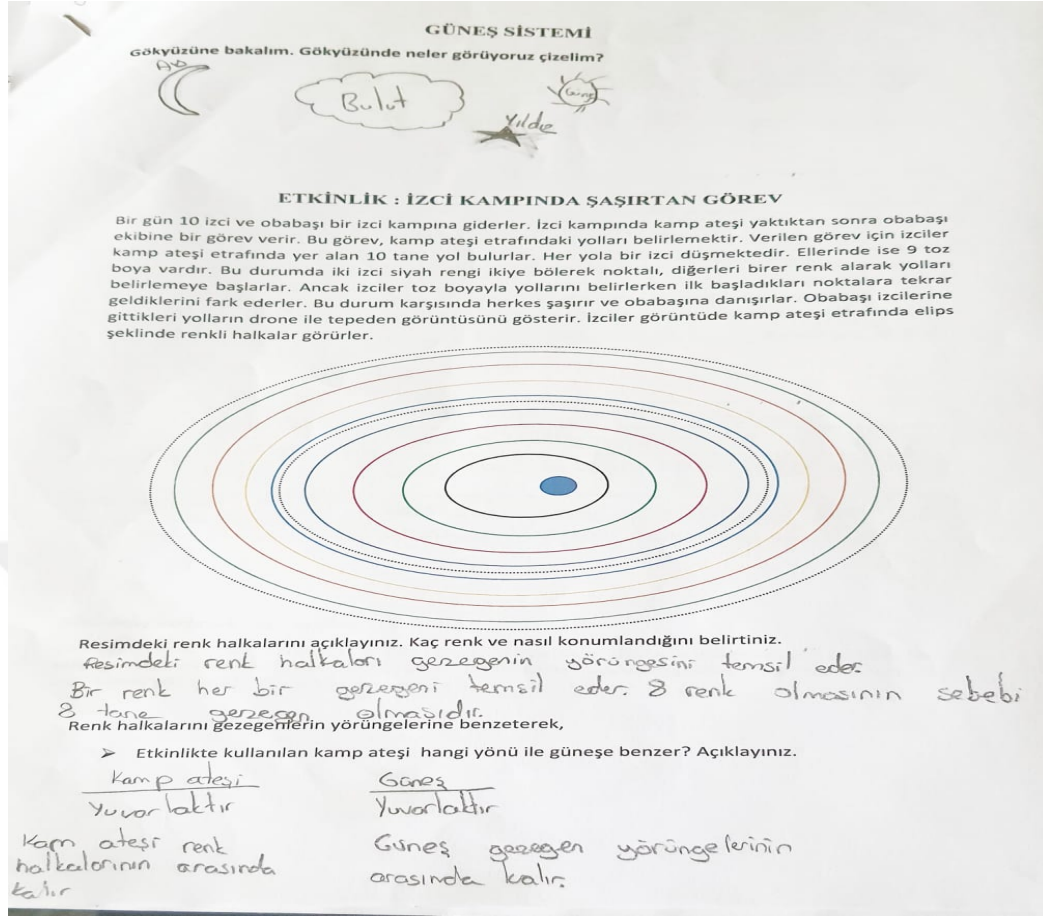 GÜNEŞ SİSTEMİ
Gökyüzüne bakalım. Gökyüzünde neler görüyoruz çizelim?
Ay
Bulut
Güneş
Yıldız
ETKİNLİK : İZCİ KAMPINDA ŞAŞIRTAN GÖREV
Bir gün 10 izci ve obabaşı bir izci kampına giderler. İzci kampında kamp ateşi yaktıktan sonra obabaşı
ekibine bir görev verir. Bu görev, kamp ateşi etrafındaki yolları belirlemektir. Verilen görev için izciler
kamp ateşi etrafında yer alan 10 tane yol bulurlar. Her yola bir izci düşmektedir. Ellerinde ise 9 toz
boya vardır. Bu durumda iki izci siyah rengi ikiye bölerek noktalı, diğerleri birer renk alarak yolları
belirlemeye başlarlar. Ancak izciler toz boyayla yollarını belirlerken ilk başladıkları noktalara tekrar
geldiklerini fark ederler. Bu durum karşısında herkes şaşırır ve obabaşına danışırlar. Obabaşı izcilerine
gittikleri yolların drone ile tepeden görüntüsünü gösterir. İzciler görüntüde kamp ateşi etrafında elips
şeklinde renkli halkalar görürler.
Resimdeki renk halkalarını açıklayınız. Kaç renk ve nasıl konumlandığını belirtiniz.
Resimdeki renk halkaları gezegenin yörüngesini temsil eder.
Bir renk her bir gezegeni temsil eder. 8 renk olmasının sebebi
8 tane gezegen olmasıdır.
Renk halkalarını gezegenlerin yörüngelerine benzeterek,
➤ Etkinlikte kullanılan kamp ateşi hangi yönü ile güneşe benzer? Açıklayınız.
Kamp ateşi Güneş
Yuvarlaktır Yuvarlaktır
Kam ateşi renk Güneş gezegen yörüngelerinin
halkalarının arasında arasında kalır.
kalır